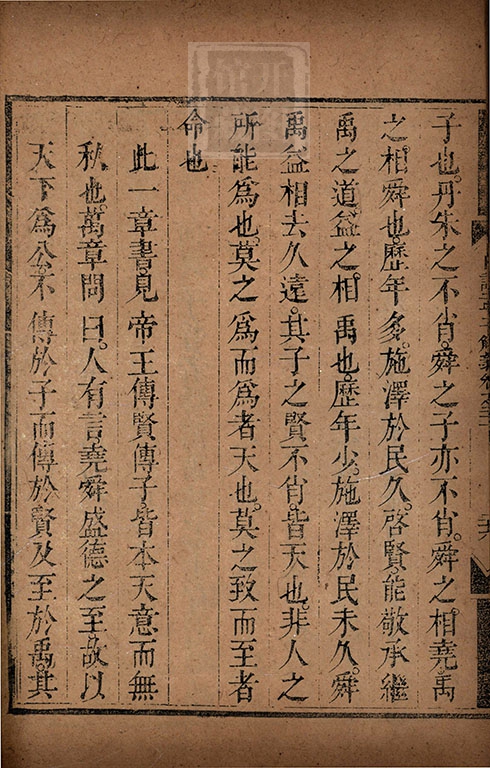 子也。丹朱之不肖。舜之子亦不肖。舜之相堯。禹
之相舜也。歷年多。施澤於民久。啓賢。能敬承繼
禹之道。益之相禹也。歷年少。施澤於民未久。舜
禹益相去久遠。其子之賢不肖。皆天也。非人之
所能為也。莫之為而為者天也。莫之致而至者
命也
此一章書。見帝王傳賢傳子皆本天意而無
私也。萬章問曰。人有言堯舜盛德之至。故以
天下為公。不傳於子而傳於賢。及至於禹。其